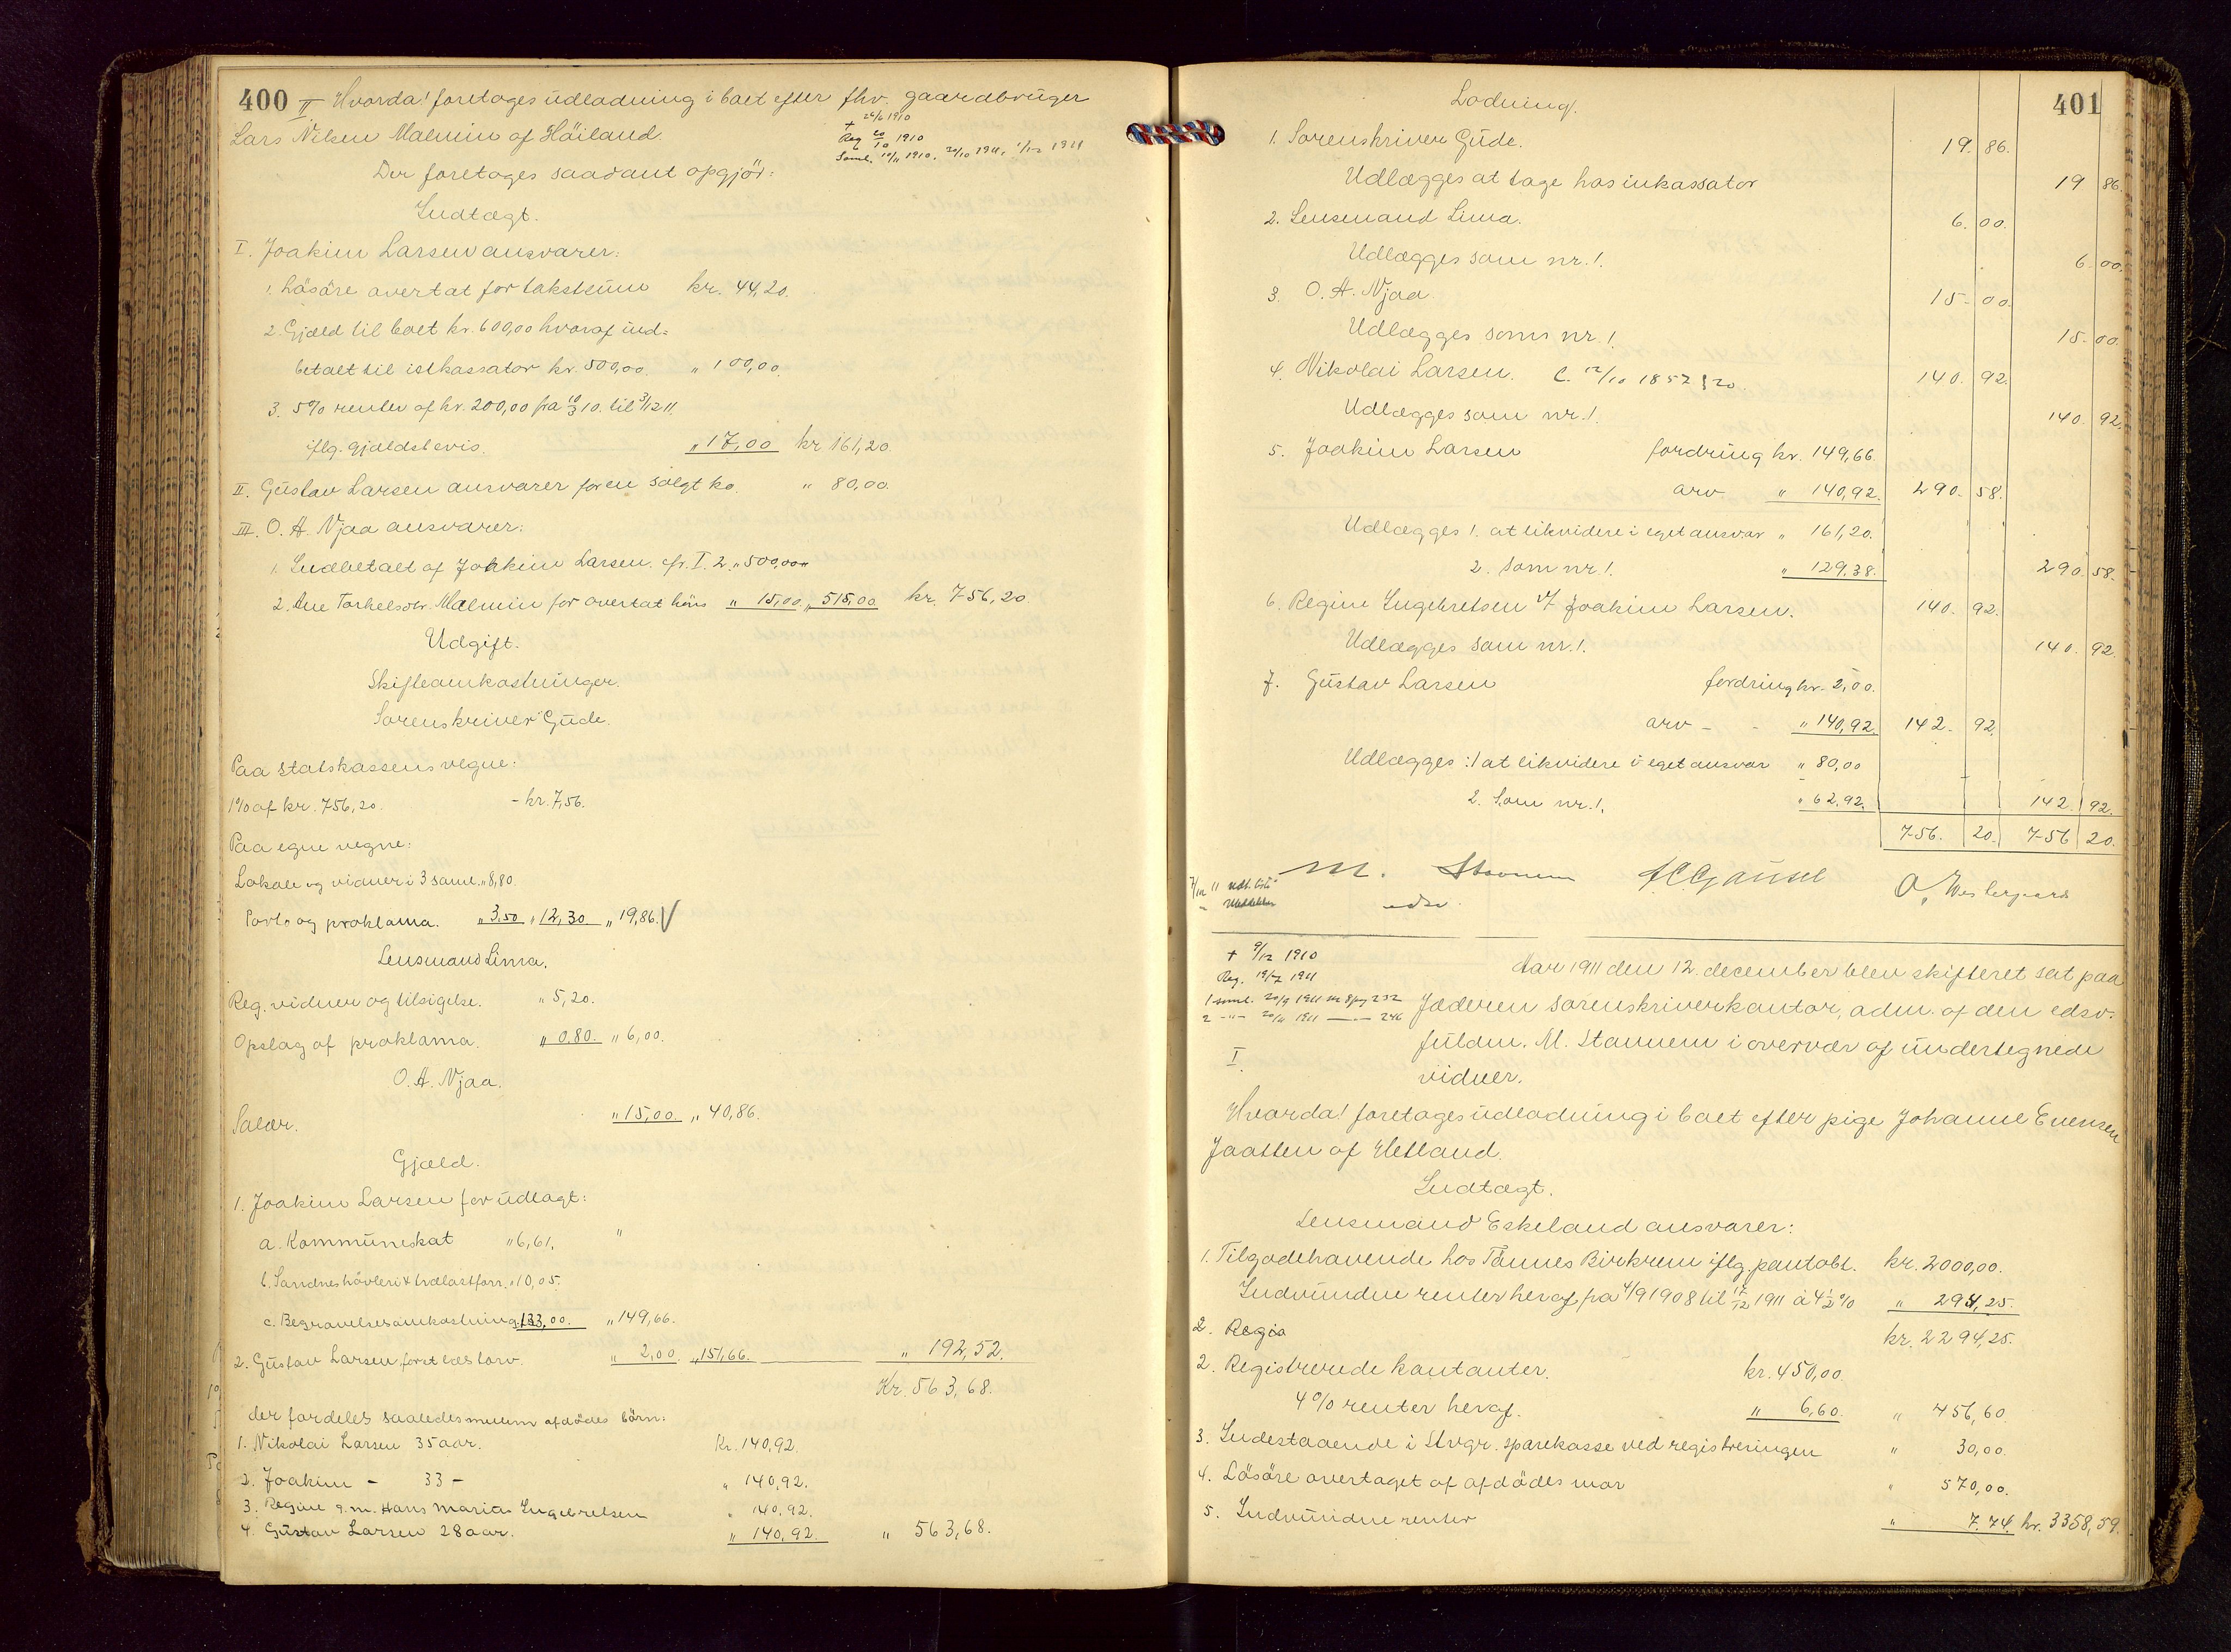 400 II Hvorda! foretoges udlodning i boet efter fhv. gaardbruger
Lars Nilsen Malmin af Höiland.
+ 24/6 1910
Reg 20/10 1910
Saml. 10/11 1910, 20/10 1911, 1/12 1911
Der foretoges saadant opgjör:
Indtægt.
I. Joakim Larsen ansvarer:
1. Lösöre overtat for takstsum kr. 44,20.
2. Gjæld til boet kr. 600,00 hvoraf ind-
betalt til istkassator kr. 500,00. " 100,00.
3. 5% renter af kr. 200,00 fra 10/3 10. til 3/12 11
iflg. gjældsbevis. " 17,00 kr 161,20.
II. Gustav Larsen ansvarer for en solgt ko. " 80,00.
III. O. A. Njaa ansvarer:
1. Indbetalt af Joakim Larsen. cfr. I. 2. " 500,00
2. Ane Torkelsdr. Malmin for overtat höns " 15,00 " 515,00 kr. 756,20
Udgift.
Skifteomkostninger.
Sorenskriver Gude.
Paa statskassens vegne:
1% af kr. 756,20. - kr. 7,56.
Paa egne vegne:
Lokale og vidner i 3 saml. " 8,80
Porto og proklama. " 3,50 " 12,30 " 19,86. √
Lensmand Lima.
Reg. vidner og tilsigelse. " 5,20.
Opslag af proklama. " 0,80. " 6,00.
O. A. Njaa.
Salær. " 15,00. " 40,86.
Gjæld.
1. Joakim Larsen for udlagt:
a. Kommuneskat " 6,61. "
b. Sandnes hövleri & trælastforr. " 10,05.
c. Begravelsesomkostning. 133,00. " 149,66.
2. Gustav Larsen, for et læs torv. " 2,00. " 151,66. " 192,52.
Kr. 563,68.
der fordeles saaledes mellem afdödes börn:
1. Nikolai Larsen 35 aar. Kr. 140,92.
2. Joakim - 33 - " 140,92.
3. Regine g. m. Hans Maria Ingebretsen " 140,92.
4. Gustav Larsen 28 aar. " 140,92. " 563,68.
401
Lodning.
1. Sorenskriver Gude. 19. 86.
Udlægges at tage hos inkassator 19 86.
2. Lensmand Lima. 6. 00.
Udlægges som nr. 1. 6. 00.
3. O. A. Njaa 15. 00.
Udlægges som nr. 1. 15. 00.
4. Nikolai Larsen. C. 12/10 1852 § 20. 140. 92.
Udlægges som nr. 1. 140. 92.
5. Joakim Larsen fordring kr. 149,66.
arv " 140,92. 290. 58.
Udlægges 1. at likvidere i eget ansvar " 161,20.
2. som nr. 1. " 129,38. 290. 58.
6. Regine Ingebretsen v/ Joakim Larsen. 140. 92.
Udlægges som nr. 1. 140. 92.
7. Gustav Larsen fordring kr. 2,00.
arv - - " 140,92. 142. 92.
Udlægges: 1 at likvidere i eget ansvar " 80,00
2. Som nr. 1. " 62,92. 142. 92.
756. 20. 756 20.
M. Stannem O. Westergaard
7/12 11 udt. liste
edsv.
+ 9/12 1910
Reg. 19/7 1911
1 saml. 20/9 1911 nr 8 pg 232
2 -"- 20/11 1911 -"- 246
Aar 1911 den 12. december blev skifteret sat paa
Jæderen sorenskriverkontor, adm. af den edsv.
fuldm. M. Stannem i overvær af undertegnede
vidner.
I.
Hvorda! foretoges udlodning i boet efter pige Johanne Evensen
Jaatten af Hetland.
Indtægt.
Lensmand Eskeland ansvarer:
1. Tilgodehavende hos Tönnes Birkrem iflg. pantobl. kr. 2000,00.
Indvundne renter heraf fra 4/9 1908 til 12/12 1911 a 4 1/2 % " 294,25.
2. Regis kr. 2294,25.
2. Registrerede kontanter. kr. 450,00.
4% renter heraf. " 6,60. " 456,60.
3. Indestaaende i Stvgr. sparekasse ved registreringen " 30,00.
4. Lösöre overtaget af afdödes mor " 570,00.
5. Indvundne renter " 7,74. kr. 3358,59.